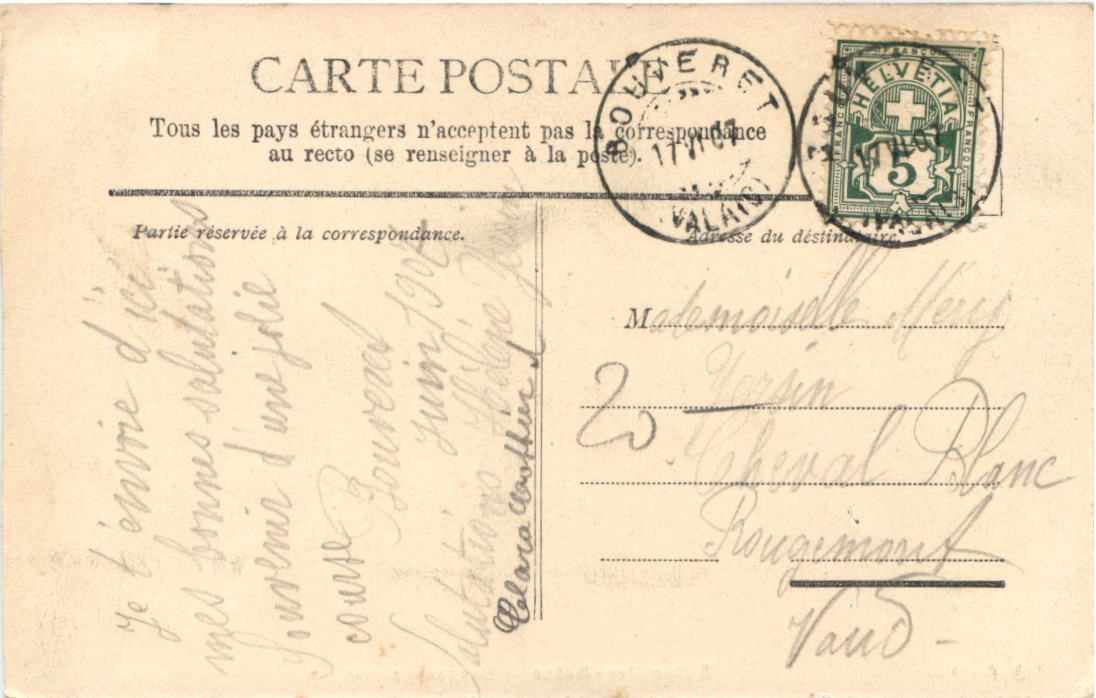 CARTE POSTALE
Tous les pays étrangers n'acceptent pas la correspondance
au recto (se renseigner à la poste).
BOUVERET
17 VI 07
(VALAIS)
FRANCO
HELVETIA
FRANCO
FRANCO
5
17 VI 07
Partie réservée à la correspondance.
Adresse du déstinataire.
Je t'envoie d'ici
mes bonnes salutations
Souvenir d'une jolie
course Bouveret
Juin 1907
Salutations Hélène
Clara
Mademoiselle Mery
Yersin
20
Cheval Blanc
Rougemont
Vaud